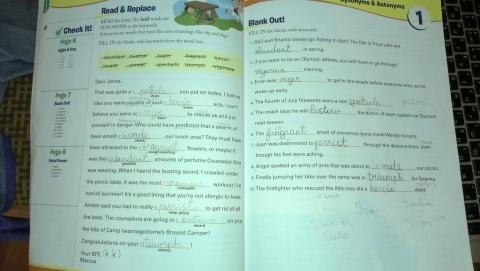 Check It!
Page 6
Page 7
Blank Out!
Page 8
Read & Replace
READ the letter. The bold words are
SYNONYMS to the keywords.
Synonyms are words that have the same meanings, like big and huge.
FILL IN the blanks with keywords from the word box.
abundant bestow eager fragrant heroic
invade persist spectacle triumph vigorous
Dear Jenna,
That was quite a spectacle you put on today. I had no
idea you were capable of such heroic acts. I can't
believe you were so eager to rescue us and put
yourself in danger. Who could have predicted that a swarm of
bees would invade our lunch area? They must have
been attracted to the fragrant flowers, or maybe it
was the abundant amounts of perfume Counselor Kim
was wearing. When I heard the buzzing sound, I crawled under
the picnic table. It was the most vigorous workout I've
had all summer! It's a good thing that you're not allergic to bees.
Amber said you had really persist to get rid of all
keep going
the bees. The counselors are going to bestow on you
the title of Camp Iwannagohome's Bravest Camper!
Congratulations on your triumph!
victory
Your BFF
Marcus
Synonyms & Antonyms
1
Blank Out!
FILL IN the blanks with keywords.
1. Gail and Shania always go fishing in April. The fish at Trout Lake are
abundant in spring.
2. If you want to be an Olympic athlete, you will have to go through
vigorous training.
eager to get to the beach before everyone else, so he
woke up early.
4. The Fourth of July fireworks were a real spectacle
5. The coach says he will bestow the honor of team captain on Dumont
next season.
6. The fragrant smell of cinnamon buns made Wendy hungry.
7. Juan was determined to persist through the dance-a-thon, even
though his feet were aching.
8. Angel spotted an army of ants that was about to invade our picnic.
9. Finally jumping her bike over the ramp was a triumph for Deanna.
10. The firefighter who rescued the little boy did a heroic deed.